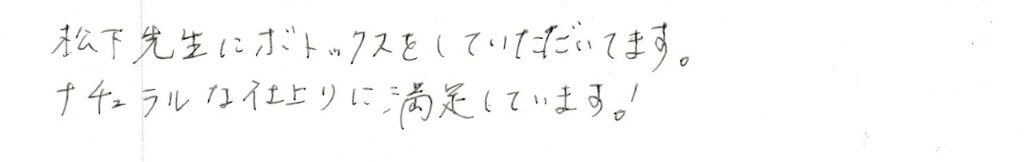 松下先生にボトックスをしていただいてます。
ナチュラルな仕上りに満足しています!